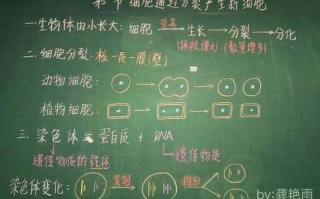 第 节 细胞通过分裂产生新细胞
一 生物体由小长大: 细胞 营养 生长 分裂 分化
(体积增大) (数量增多)
二 细胞分裂: 核-质-膜(壁)
动物细胞:
植物细胞:
三 染色体 = 蛋白质 + DNA
遗传物质的载体 遗传物质
染色体变化: 复制 均分
by:龚艳雨